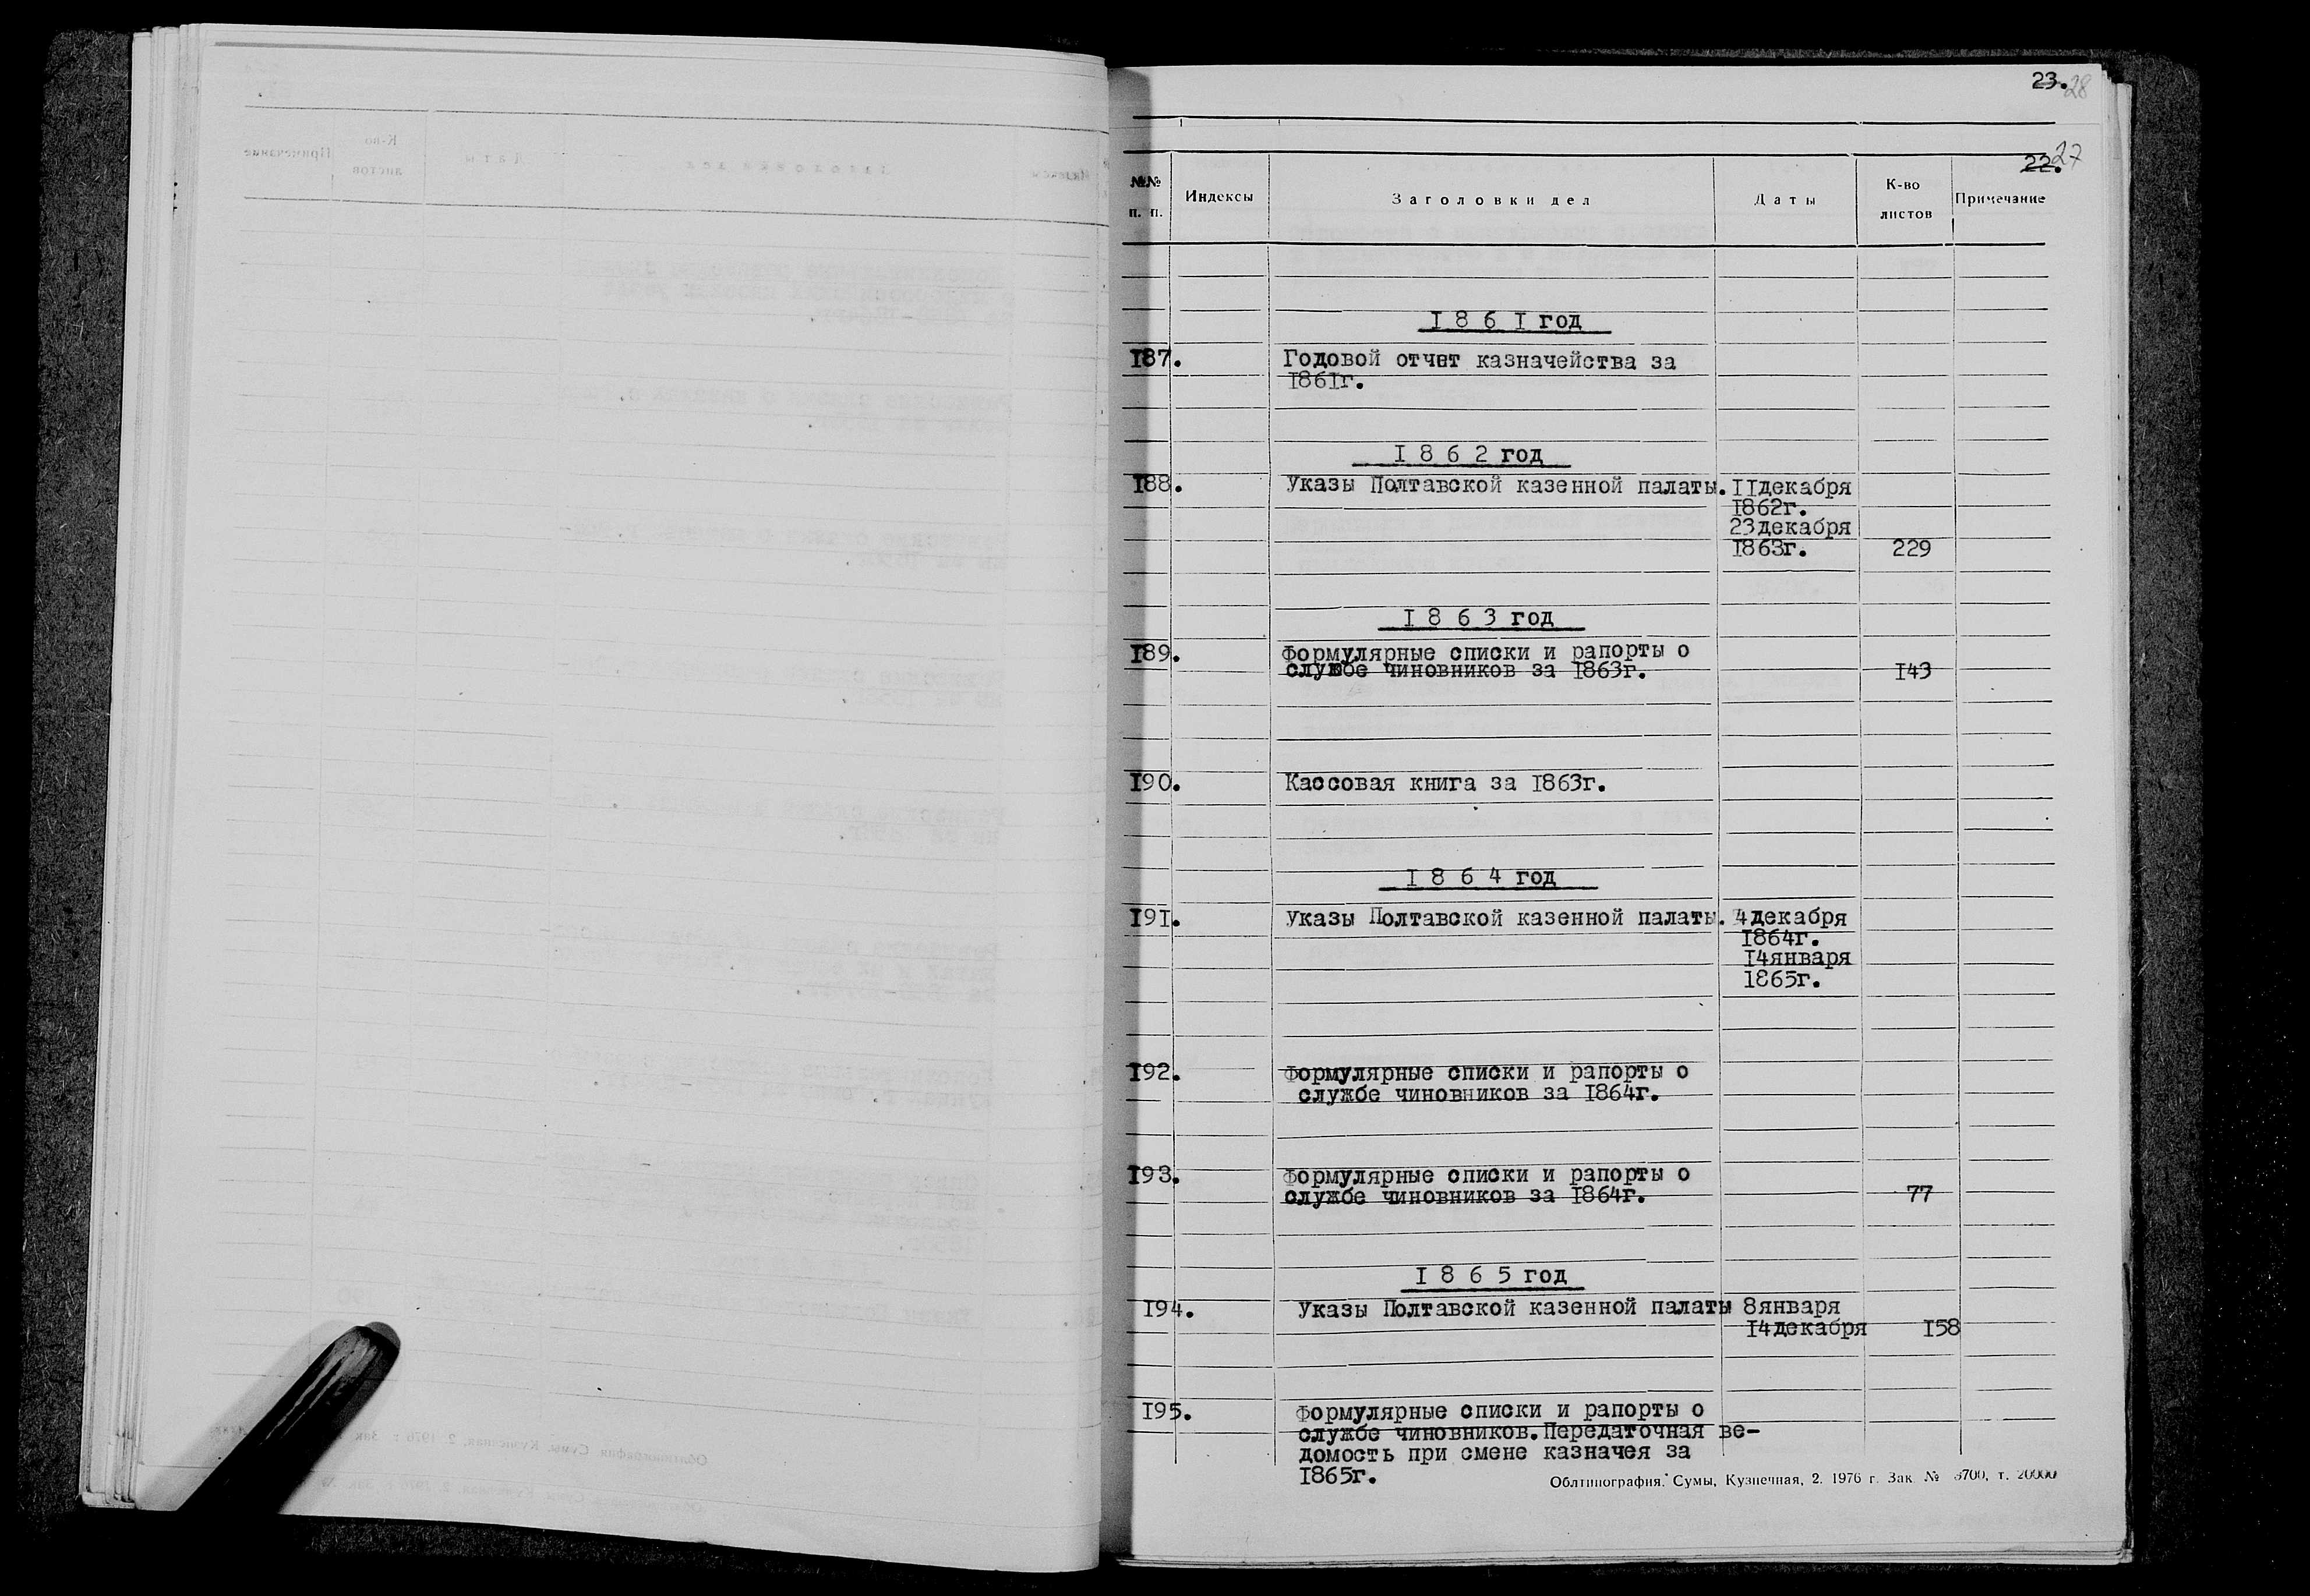 23. 28
22. 27
№№ п. п. Индексы Заголовки дел Даты К-во листов Примечание
1861 год
187. Годовой отчет казначейства за
1861г.
1862 год
188. Указы Полтавской казенной палаты. 11декабря
1862г.
23декабря
1863г. 229
1863 год
189. Формулярные списки и рапорты о
службе чиновников за 1863г. 143
190. Кассовая книга за 1863г.
1864 год
191. Указы Полтавской казенной палаты. 4декабря
1864г.
14января
1865г.
192. Формулярные списки и рапорты о
службе чиновников за 1864г.
193. Формулярные списки и рапорты о
службе чиновников за 1864г. 77
1865 год
194. Указы Полтавской казенной палаты 8января
14декабря 158
195. Формулярные списки и рапорты о
службе чиновников.Передаточная ве-
домость при смене казначея за
1865г.
Облтипография. Сумы, Кузнечная, 2. 1976 г. Зак № 3700, т. 20000